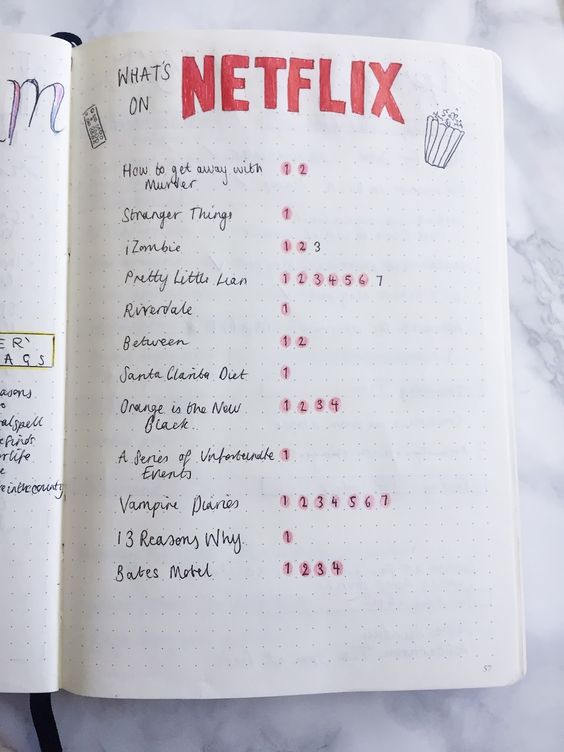 m
ER'
AGS
asons
o
alspell
efinds
rlife
e
einthecounty
WHAT'S
ON
NETFLIX
How to get away with
Murder
1 2
Stranger Things 1
iZombie 1 2 3
Pretty Little Liars 1 2 3 4 5 6 7
Riverdale 1
Between 1 2
Santa Clarita Diet 1
Orange is the New
Black.
1 2 3 4
A Series of Unfortunate
Events
1
Vampire Diaries 1 2 3 4 5 6 7
13 Reasons Why 1
Bates Motel 1 2 3 4
57